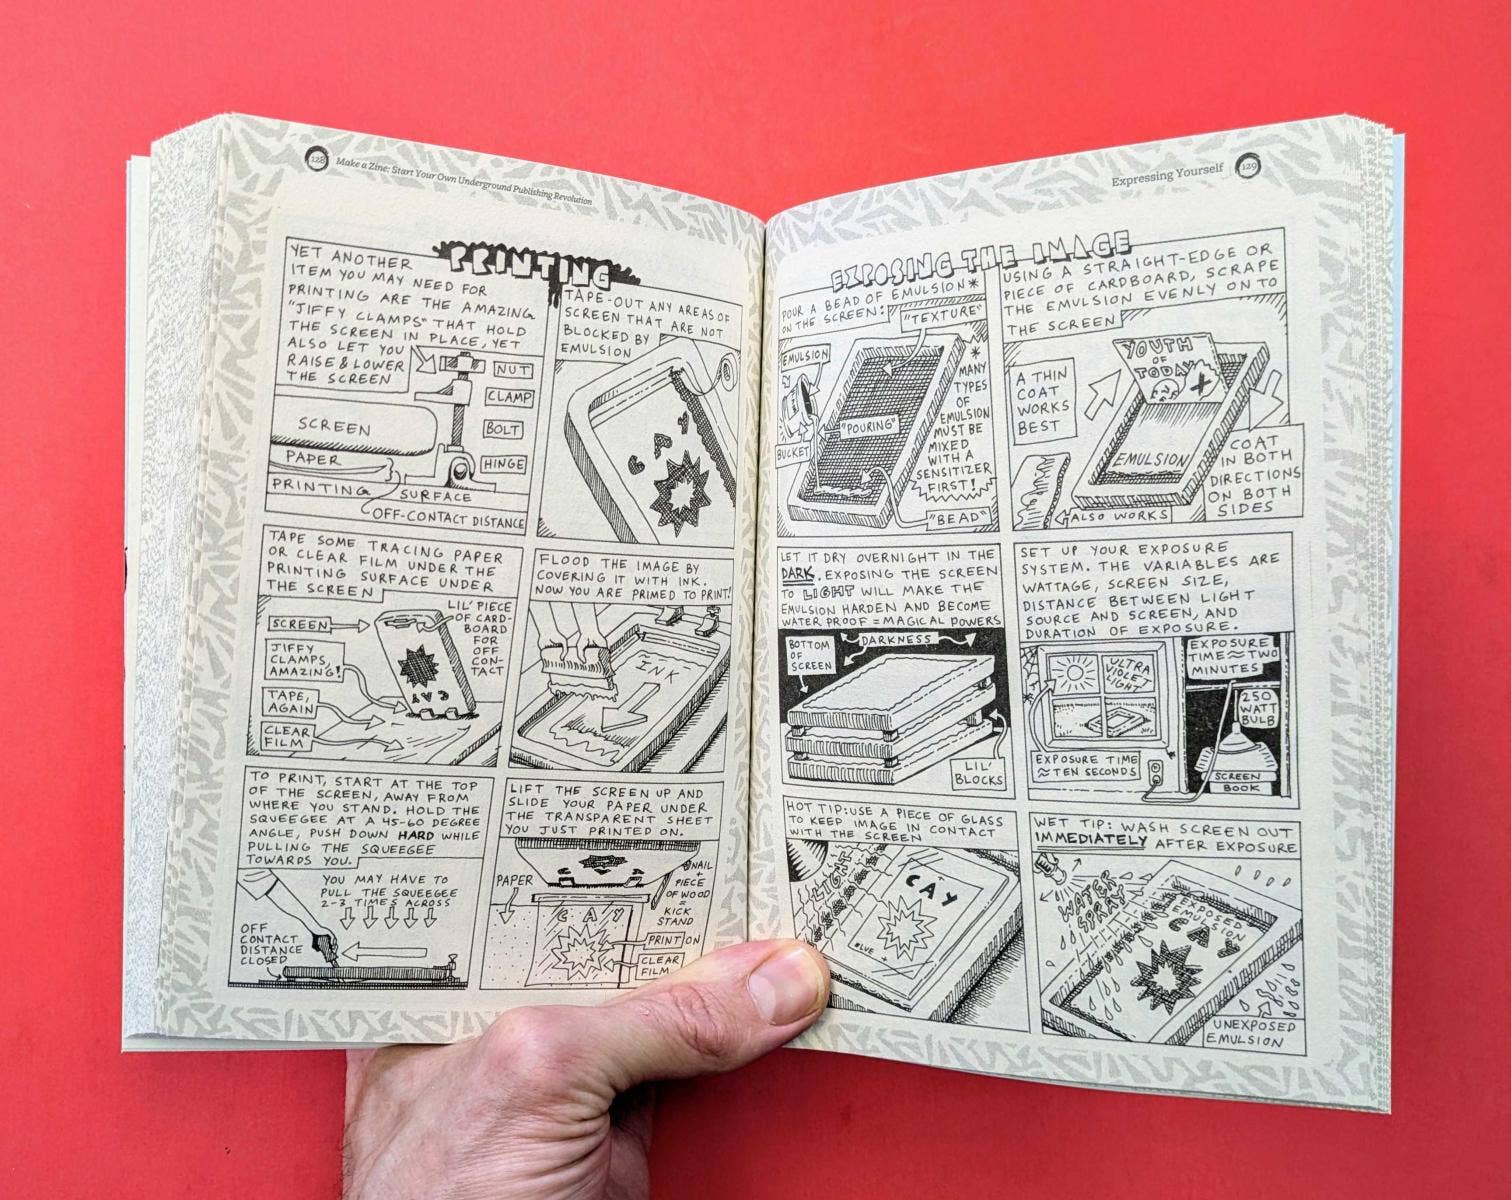 128
Make a Zine: Start Your Own Underground Publishing Revolution
PRINTING
YET ANOTHER
ITEM YOU MAY NEED FOR
PRINTING ARE THE AMAZING
"JIFFY CLAMPS" THAT HOLD
THE SCREEN IN PLACE, YET
ALSO LET YOU
RAISE & LOWER
THE SCREEN
NUT
CLAMP
BOLT
HINGE
SCREEN
PAPER
PRINTING
SURFACE
OFF-CONTACT DISTANCE
TAPE-OUT ANY AREAS OF
SCREEN THAT ARE NOT
BLOCKED BY
EMULSION
GAY
TAPE SOME TRACING PAPER
OR CLEAR FILM UNDER THE
PRINTING SURFACE UNDER
THE SCREEN
SCREEN
JIFFY
CLAMPS,
AMAZING!
TAPE,
AGAIN
CLEAR
FILM
LIL' PIECE
OF CARD-
BOARD
FOR
OFF
CON-
TACT
FLOOD THE IMAGE BY
COVERING IT WITH INK.
NOW YOU ARE PRIMED TO PRINT!
INK
TO PRINT, START AT THE TOP
OF THE SCREEN, AWAY FROM
WHERE YOU STAND. HOLD THE
SQUEEGEE AT A 45-60 DEGREE
ANGLE, PUSH DOWN HARD WHILE
PULLING THE SQUEEGEE
TOWARDS YOU.
YOU MAY HAVE TO
PULL THE SQUEEGEE
2-3 TIMES ACROSS
OFF
CONTACT
DISTANCE
CLOSED
LIFT THE SCREEN UP AND
SLIDE YOUR PAPER UNDER
THE TRANSPARENT SHEET
YOU JUST PRINTED ON.
PAPER
NAIL
+
PIECE
OF WOOD
=
KICK
STAND
GAY
PRINT ON
CLEAR
FILM
Expressing Yourself
129
EXPOSING THE IMAGE
POUR A BEAD OF EMULSION*
ON THE SCREEN:
"TEXTURE"
EMULSION
BUCKET
"POURING"
"BEAD"
*
MANY
TYPES
OF
EMULSION
MUST BE
MIXED
WITH A
SENSITIZER
FIRST!
USING A STRAIGHT-EDGE OR
PIECE OF CARDBOARD, SCRAPE
THE EMULSION EVENLY ON TO
THE SCREEN
YOUTH
OF
TODAY
A THIN
COAT
WORKS
BEST
EMULSION
ALSO WORKS
COAT
IN BOTH
DIRECTIONS
ON BOTH
SIDES
LET IT DRY OVERNIGHT IN THE
DARK. EXPOSING THE SCREEN
TO LIGHT WILL MAKE THE
EMULSION HARDEN AND BECOME
WATER PROOF = MAGICAL POWERS
BOTTOM
OF
SCREEN
DARKNESS
LIL'
BLOCKS
SET UP YOUR EXPOSURE
SYSTEM. THE VARIABLES ARE
WATTAGE, SCREEN SIZE,
DISTANCE BETWEEN LIGHT
SOURCE AND SCREEN, AND
DURATION OF EXPOSURE.
ULTRA
VIOLET
LIGHT
EXPOSURE TIME
≈ TEN SECONDS
EXPOSURE
TIME ≈ TWO
MINUTES
250
WATT
BULB
SCREEN
BOOK
HOT TIP: USE A PIECE OF GLASS
TO KEEP IMAGE IN CONTACT
WITH THE SCREEN
LIGHT
GAY
WET TIP: WASH SCREEN OUT
IMMEDIATELY AFTER EXPOSURE
WATER
SPRAY
EXPOSED
EMULSION
GAY
UNEXPOSED
EMULSION